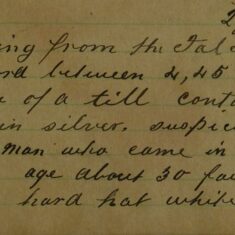 2
ing from the Tal
rd between 2,45
of a till cont
in silver. suspic
man who came in
age about 30 fa
hard hat white